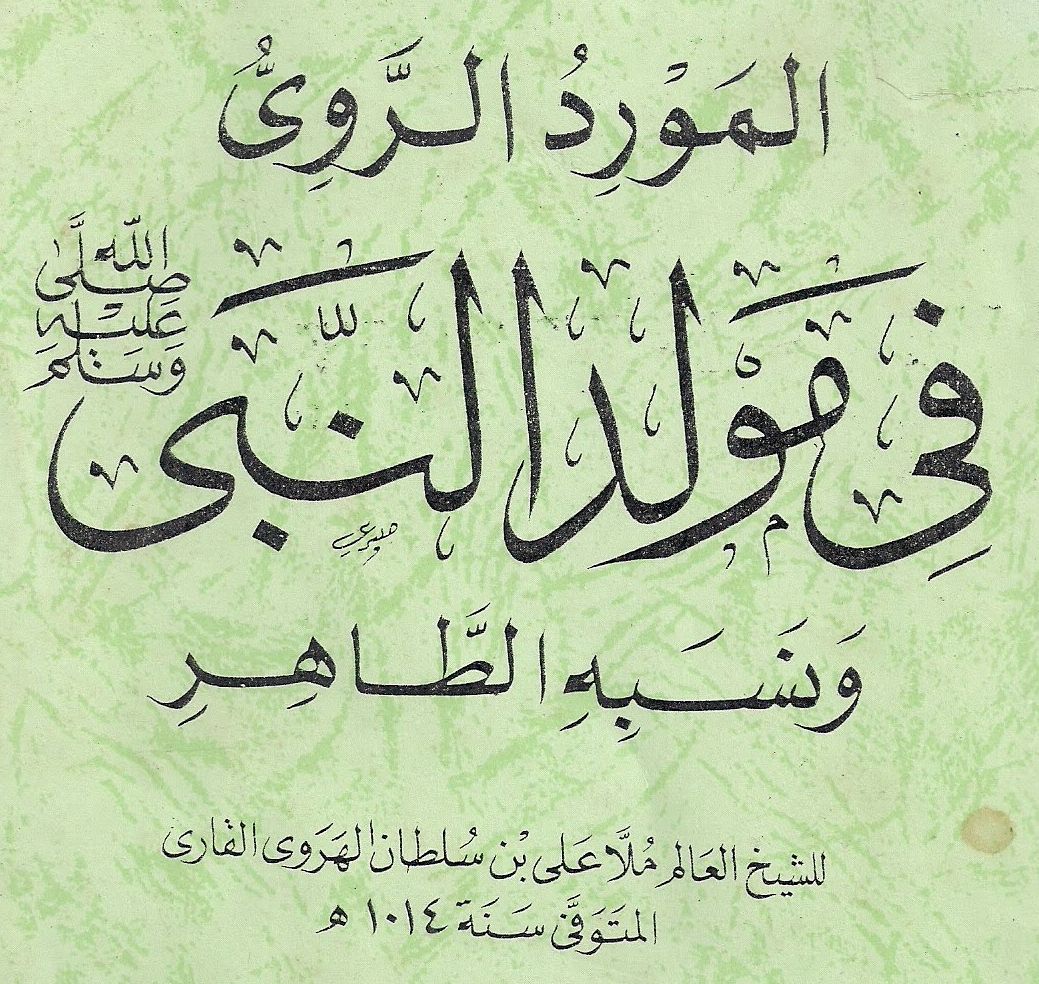 المَوْرِدُ الرَّوِيُّ
فِي مَوْلِدِ النَّبِى
صَلَّى اللّٰه
عَلَيْهِ
وَسَلَّمَ
وَنَسَبِهِ الطَّاهِرِ
للشيخ العَالم مُلَّا عَلى بْن سُلطان الهَرَوى القارى
المتَوَفَّى سَنَة ١٠١٤ هـ